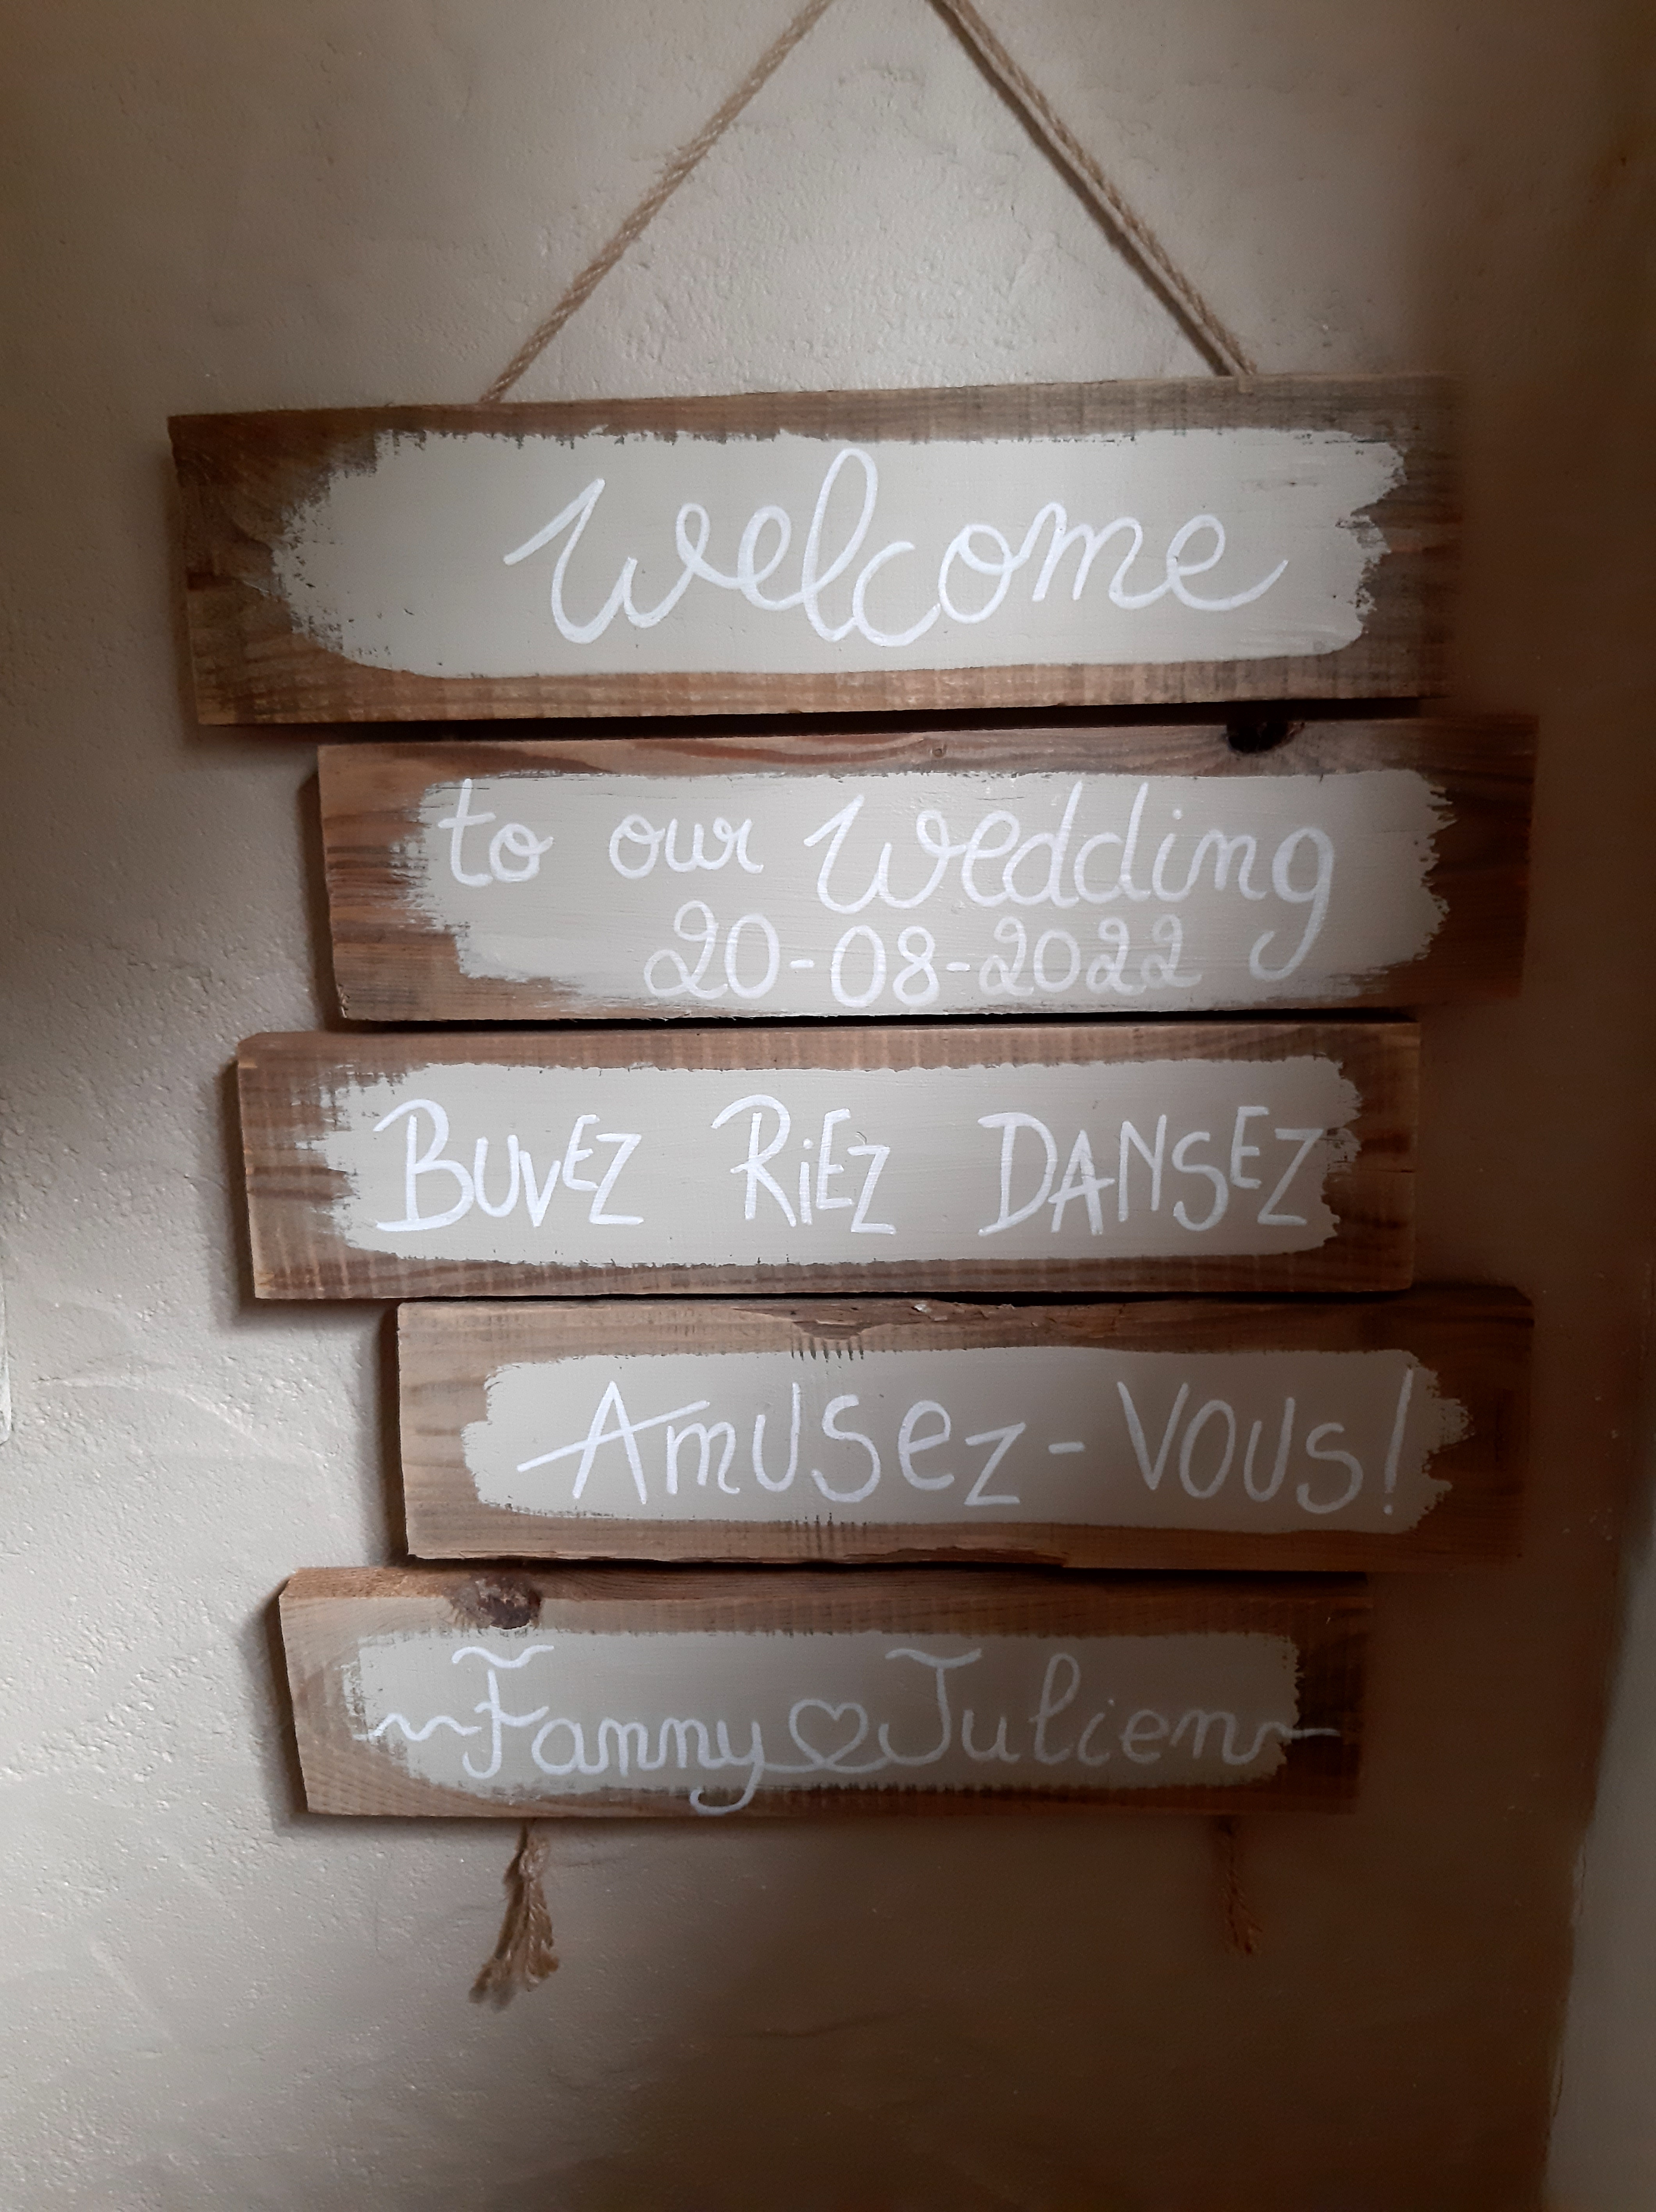 welcome
to our Wedding
20-08-2022
BUVEZ RiEZ DANSEZ
AmUSeZ-VOUS!
Fanny Julien